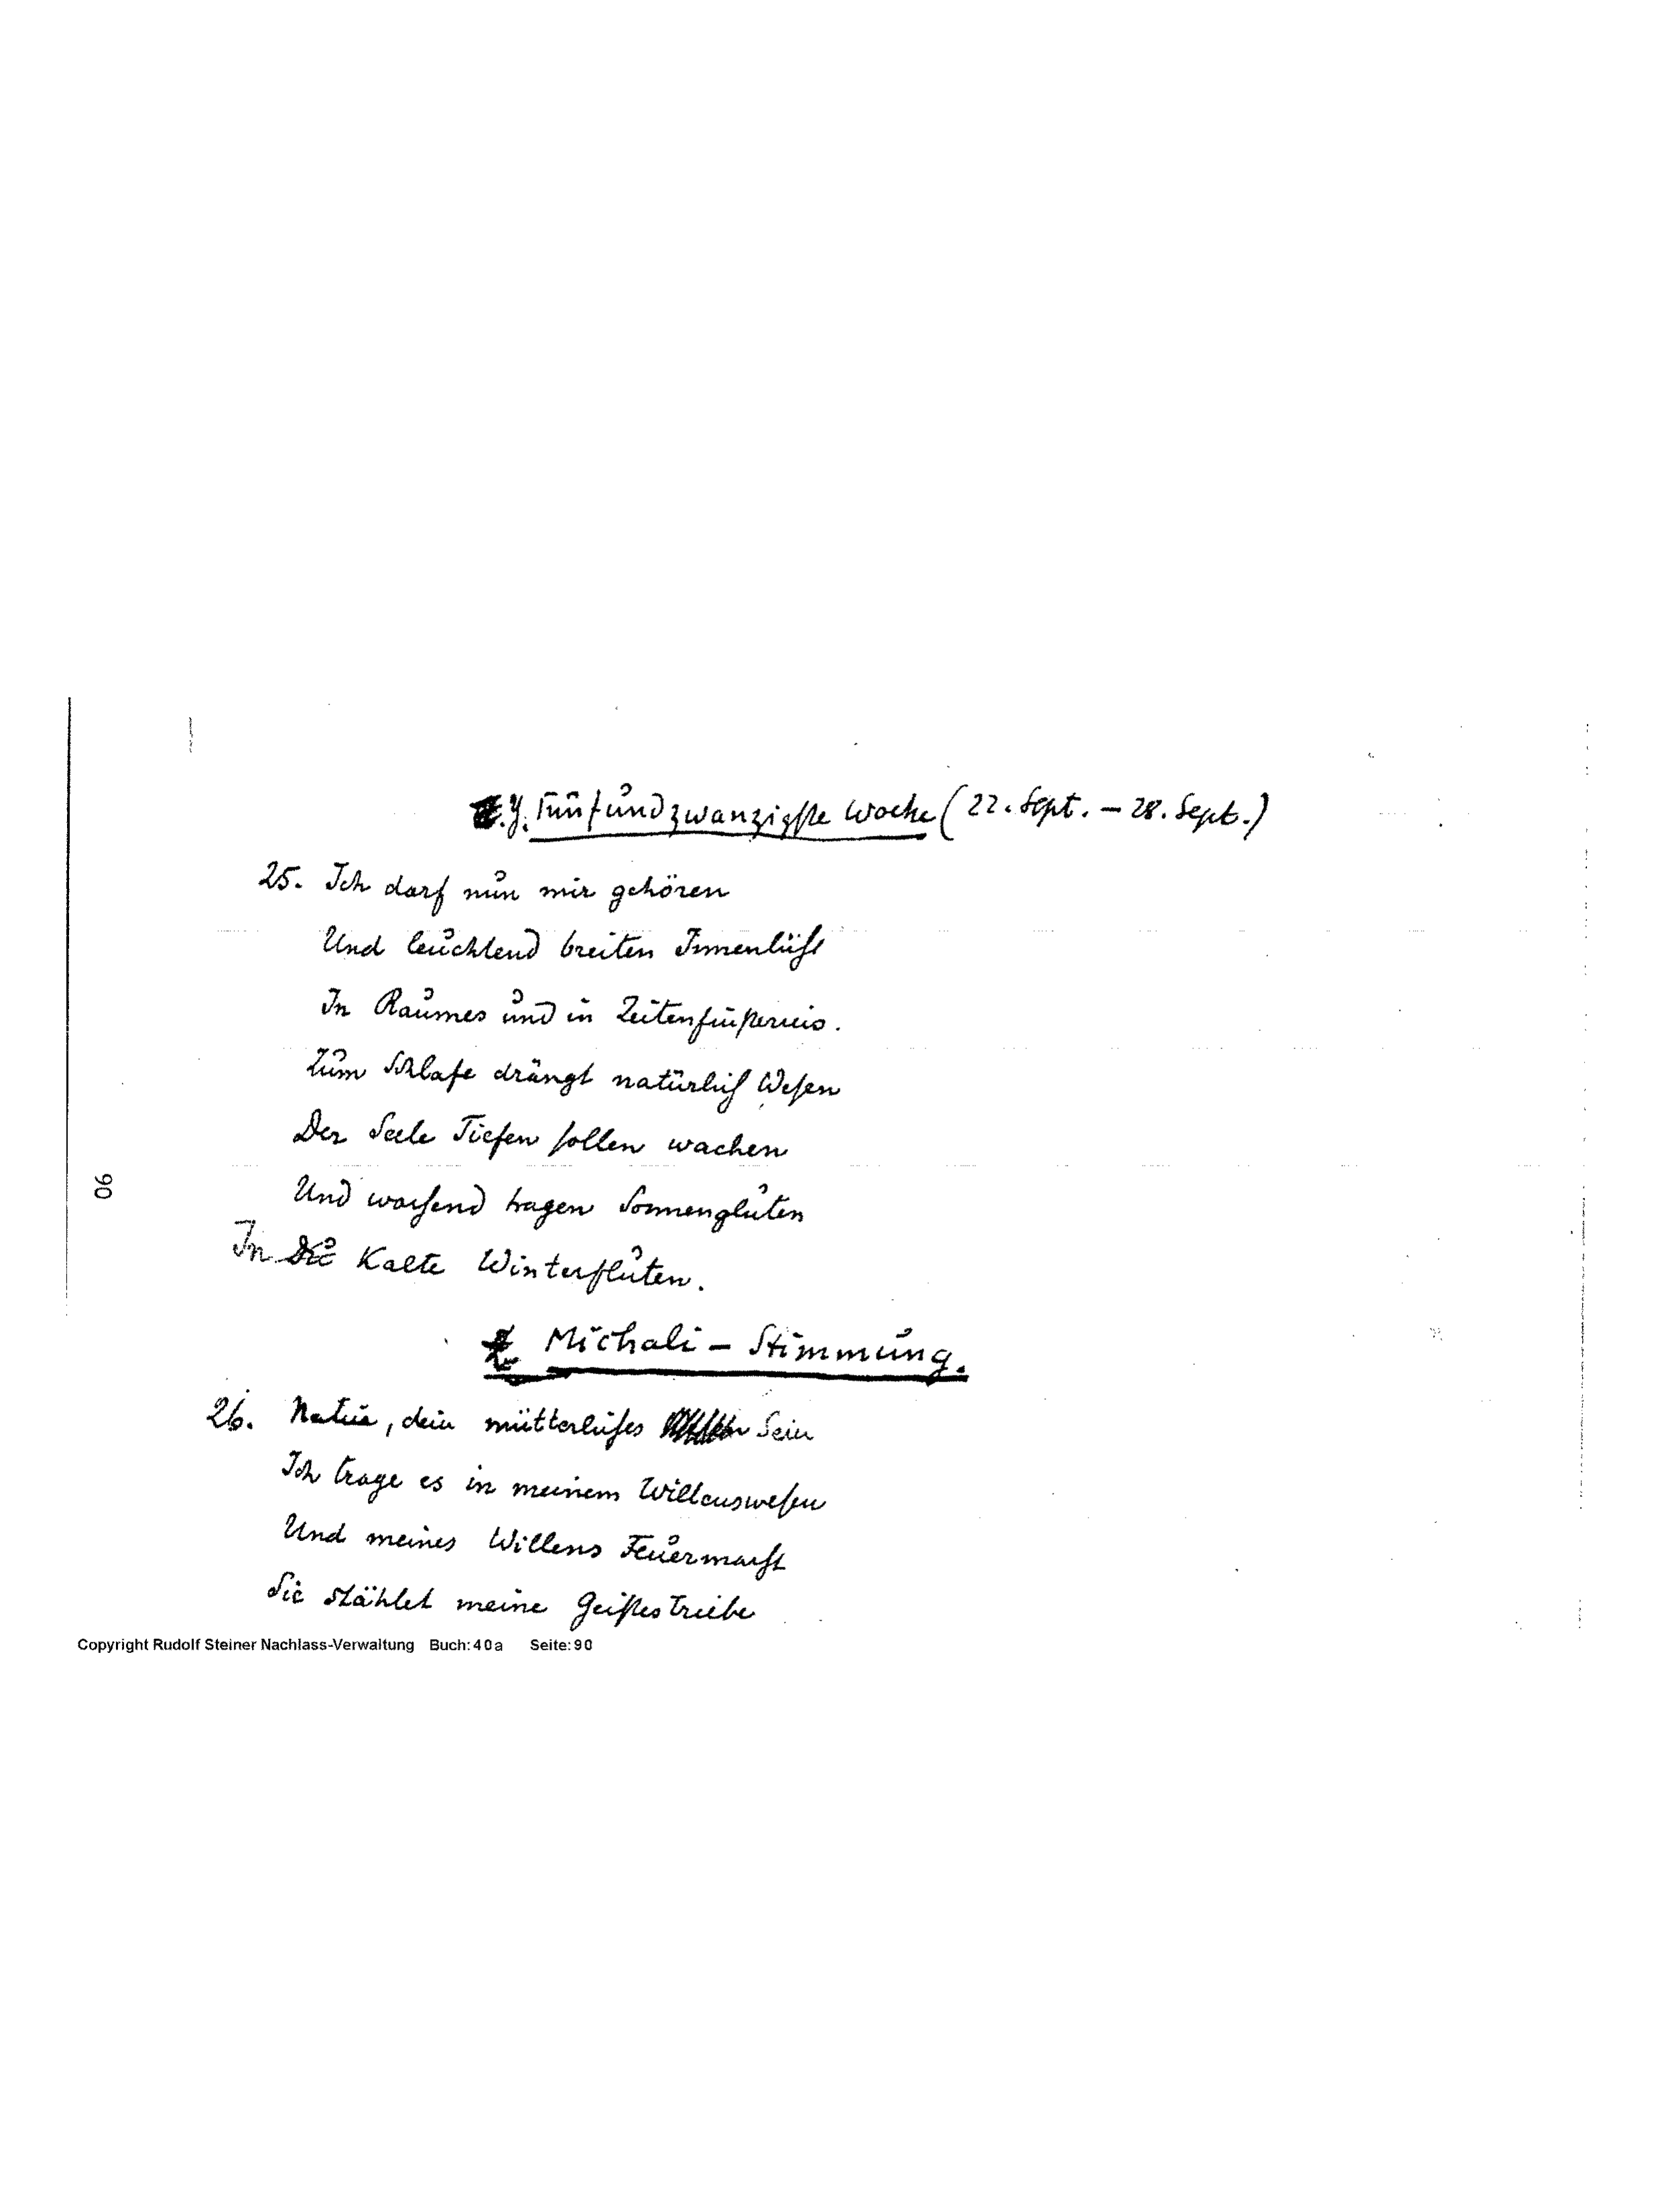 Y. Fünfundzwanzigste Woche (22. Sept. – 28. Sept.)
25. Ich darf nun mir gehören
Und leuchtend breiten Innenlicht
In Raumes und in Zeitenfinsternis.
Zum Schlafe drängt natürlich Wesen
Der Seele Tiefen sollen wachen
Und wachend tragen Sonnengluten
In die Kalte Winterfluten.
90
Z Michali – Stimmung.
26. Natur, dein mütterliches Sein
Ich trage es in meinem Willenswesen
Und meines Willens Feuermacht
Sie stählet meine Geistestriebe
Copyright Rudolf Steiner Nachlass-Verwaltung Buch: 40a Seite: 90